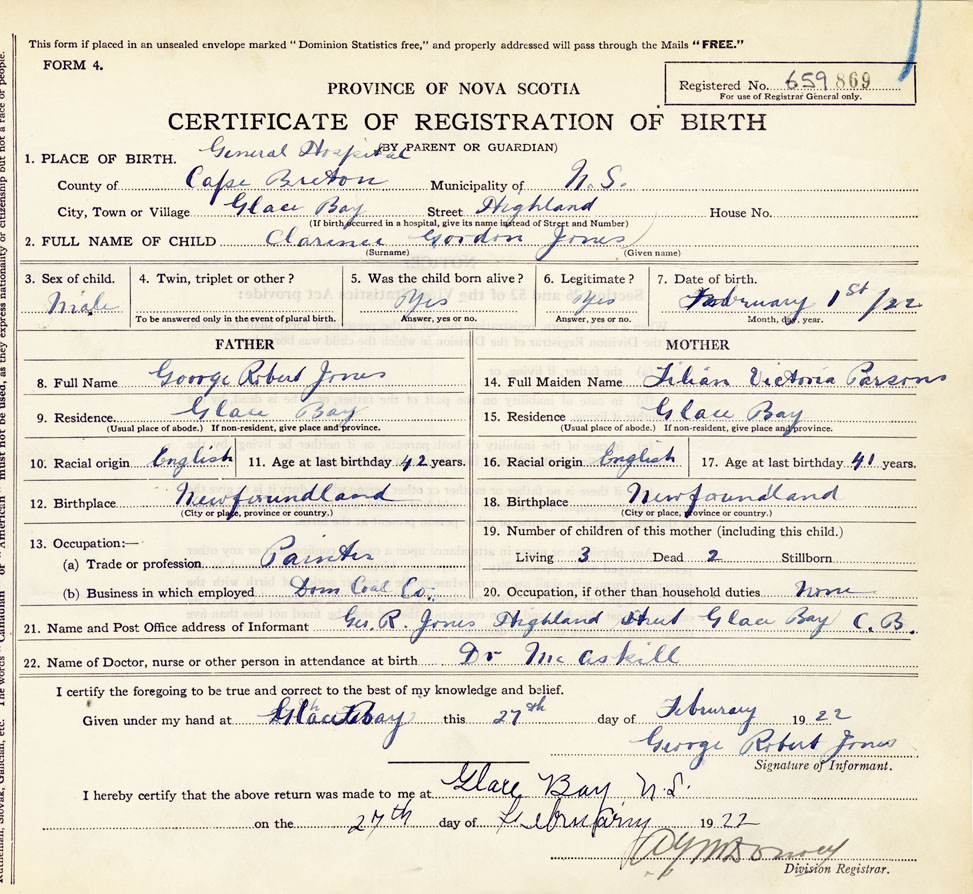 This form if placed in an unsealed envelope marked "Dominion Statistics free," and properly addressed will pass through the Mails "FREE."
FORM 4.
Registered No. 659869
For use of Registrar General only.
PROVINCE OF NOVA SCOTIA
CERTIFICATE OF REGISTRATION OF BIRTH
(BY PARENT OR GUARDIAN)
1. PLACE OF BIRTH. General Hospital
County of Cape Breton Municipality of N.S.
City, Town or Village Glace Bay Street Highland House No.
(If birth occurred in a hospital, give its name instead of Street and Number)
2. FULL NAME OF CHILD Clarence Gordon Jones
(Surname) (Given name)
3. Sex of child. 4. Twin, triplet or other? 5. Was the child born alive? 6. Legitimate? 7. Date of birth.
Male Yes Yes February 1st/22
To be answered only in the event of plural birth. Answer, yes or no. Answer, yes or no. Month, day, year.
FATHER MOTHER
8. Full Name George Robert Jones 14. Full Maiden Name Lilian Victoria Parsons
9. Residence. Glace Bay 15. Residence Glace Bay
(Usual place of abode.) If non-resident, give place and province. (Usual place of abode.) If non-resident, give place and province.
10. Racial origin English 11. Age at last birthday 42 years. 16. Racial origin English 17. Age at last birthday 41 years.
12. Birthplace Newfoundland 18. Birthplace Newfoundland
(City or place, province or country.) (City or place, province or country.)
13. Occupation:— 19. Number of children of this mother (including this child.)
(a) Trade or profession Painter Living 3 Dead 2 Stillborn
(b) Business in which employed Dom Coal Co. 20. Occupation, if other than household duties None
21. Name and Post Office address of Informant Geo. R. Jones Highland Street Glace Bay C. B.
22. Name of Doctor, nurse or other person in attendance at birth Dr McAskill
I certify the foregoing to be true and correct to the best of my knowledge and belief.
Given under my hand at Glace Bay this 27th day of Februrary 1922
George Robert Jones
Signature of Informant.
I hereby certify that the above return was made to me at Glace Bay N.S.
on the 27th day of February 1922
Division Registrar.